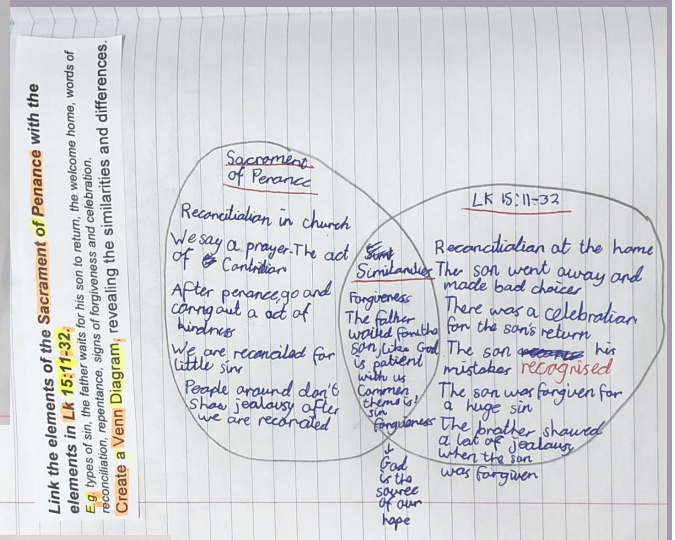 Link the elements of the Sacrament of Penance with the
elements in Lk 15:11-32.
E.g. types of sin, the father waits for his son to return, the welcome home, words of
reconciliation, repentance, signs of forgiveness and celebration.
Create a Venn Diagram, revealing the similarities and differences.
Sacrament
of Penance
Reconciliation in church
We say a prayer. The act
of Contrition
After penance, go and
carring out a act of
kindness
We are reconciled for
little sins
People around don't
show jealousy after
we are reconated
Similarities
Forgiveness
The father
waited for the
son, like God
is patient
with us
Common
theme is!
sin
Forgiveness
↓
God
is the
source
of our
hope
LK 15:11-32
Reconciliation at the home
The son went away and
made bad choices
There was a celebration
for the son's return
The son his
mistakes recognised
The son was forgiven for
a huge sin
The brother showed
a lot of jealousy
when the son
was forgiven